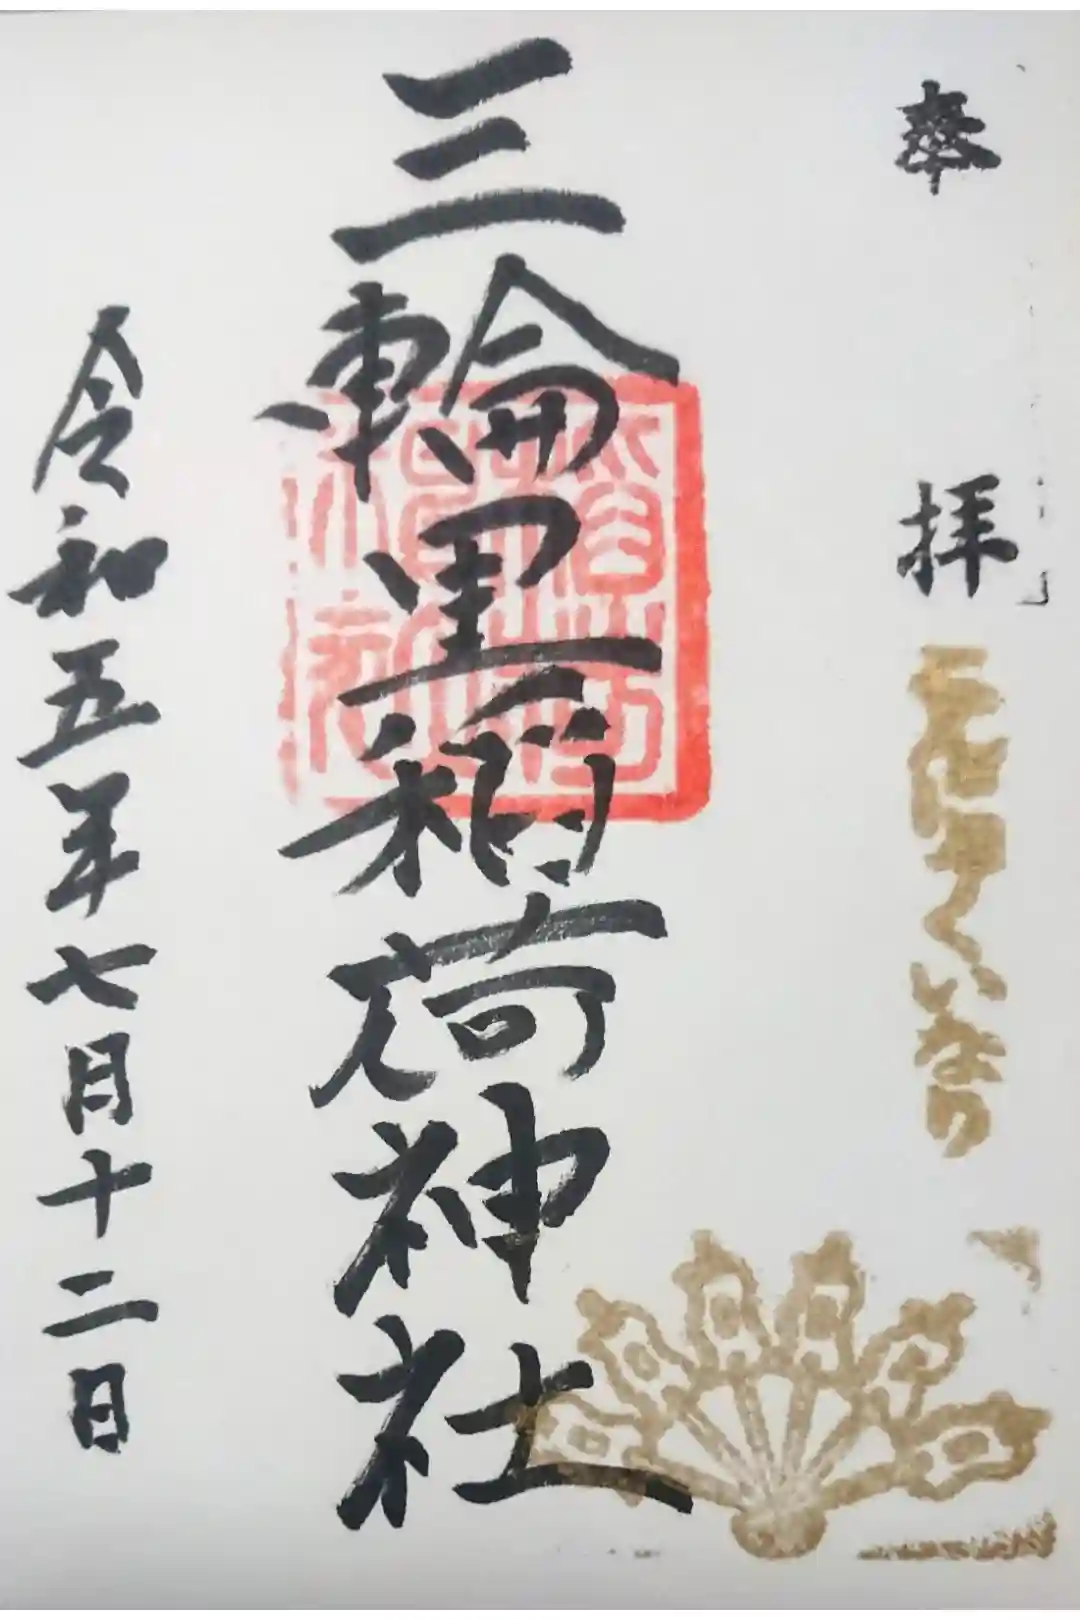 奉拝
こんにゃくいなり
三輪里稲荷神社
令和五年七月十二日